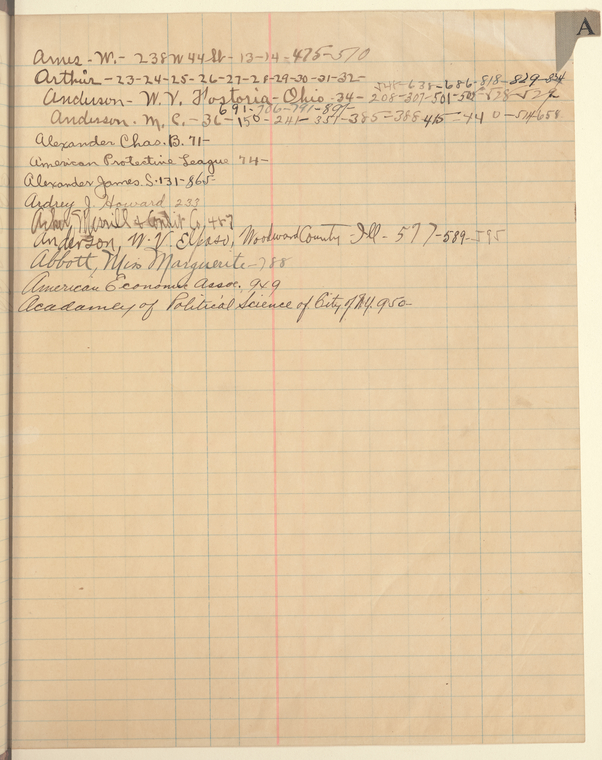 A
Ames - W. - 238 W 44 St - 13-14-475-570
Arthur - 23-24-25-26-27-28-29-30-31-32-
541-638-686-818-829-834
Anderson - W. V. Fostoria - Ohio - 34 - 208-307-501-507-528-529
691-706-791-891-
Anderson. M. C. - 36-150-241-351-385-388 415-440-574 658
Alexander Chas. B. 71-
American Protective League 74-
Alexander James S. 131-865-
Ardrey J. Howard 233
Merrill & Condit Co, 487
Anderson, W. V. El Paso, Woodward County - Ill - 577-589-595
Abbott, Miss Marguerite - 788
American Economic Assoc. 949
Acadamey of Political Science of City of N.Y. 950-